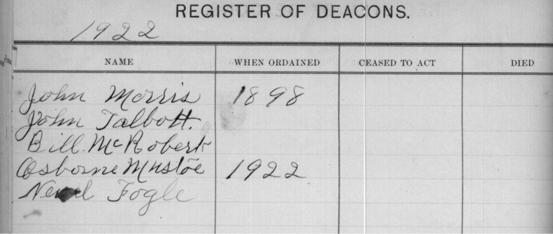 REGISTER OF DEACONS.
1922
NAME WHEN ORDAINED CEASED TO ACT DIED
John Morris 1898
John Talbott.
Bill McRobert
Osborne Mustoe 1922
Fogle